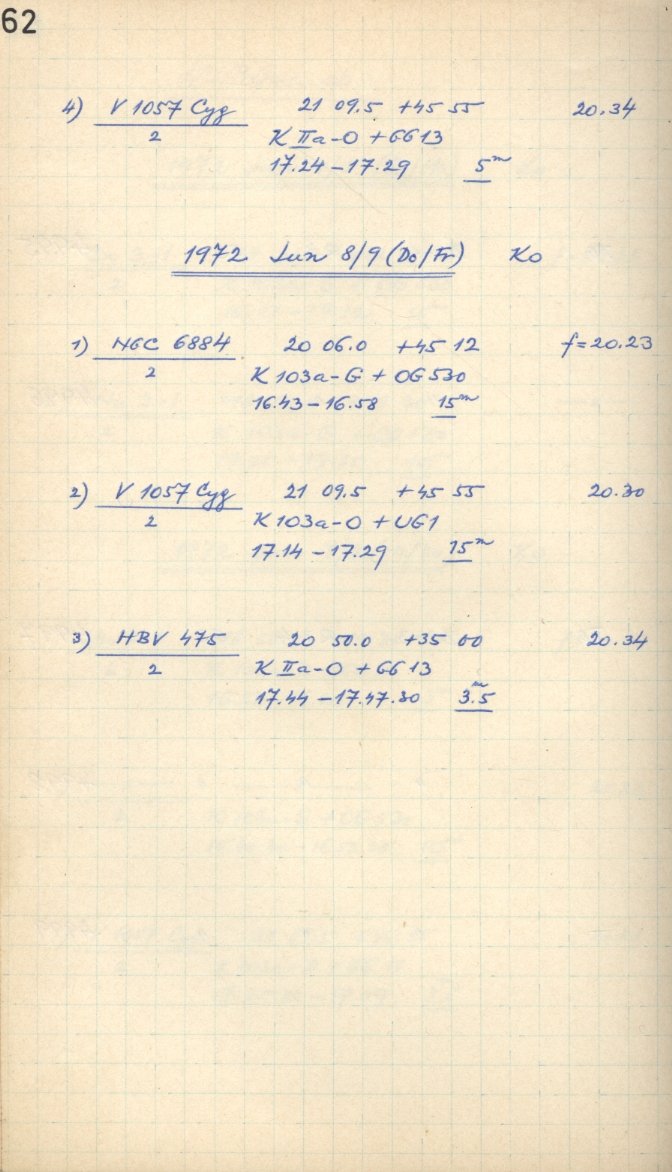 62
4) V 1057 Cyg 21 09.5 +45 55 20.34
2 K IIa-O + GG13
17.24-17.29 5m
1972 Jun 8/9 (Do/Fr) Ko
1) NGC 6884 20 06.0 +45 12 f=20.23
2 K 103a-G + OG530
16.43-16.58 15m
2) V 1057 Cyg 21 09.5 +45 55 20.30
2 K 103a-O + UG1
17.14-17.29 15m
3) HBV 475 20 50.0 +35 00 20.34
2 K IIa-O + GG13
17.44-17.47.30 3.5m